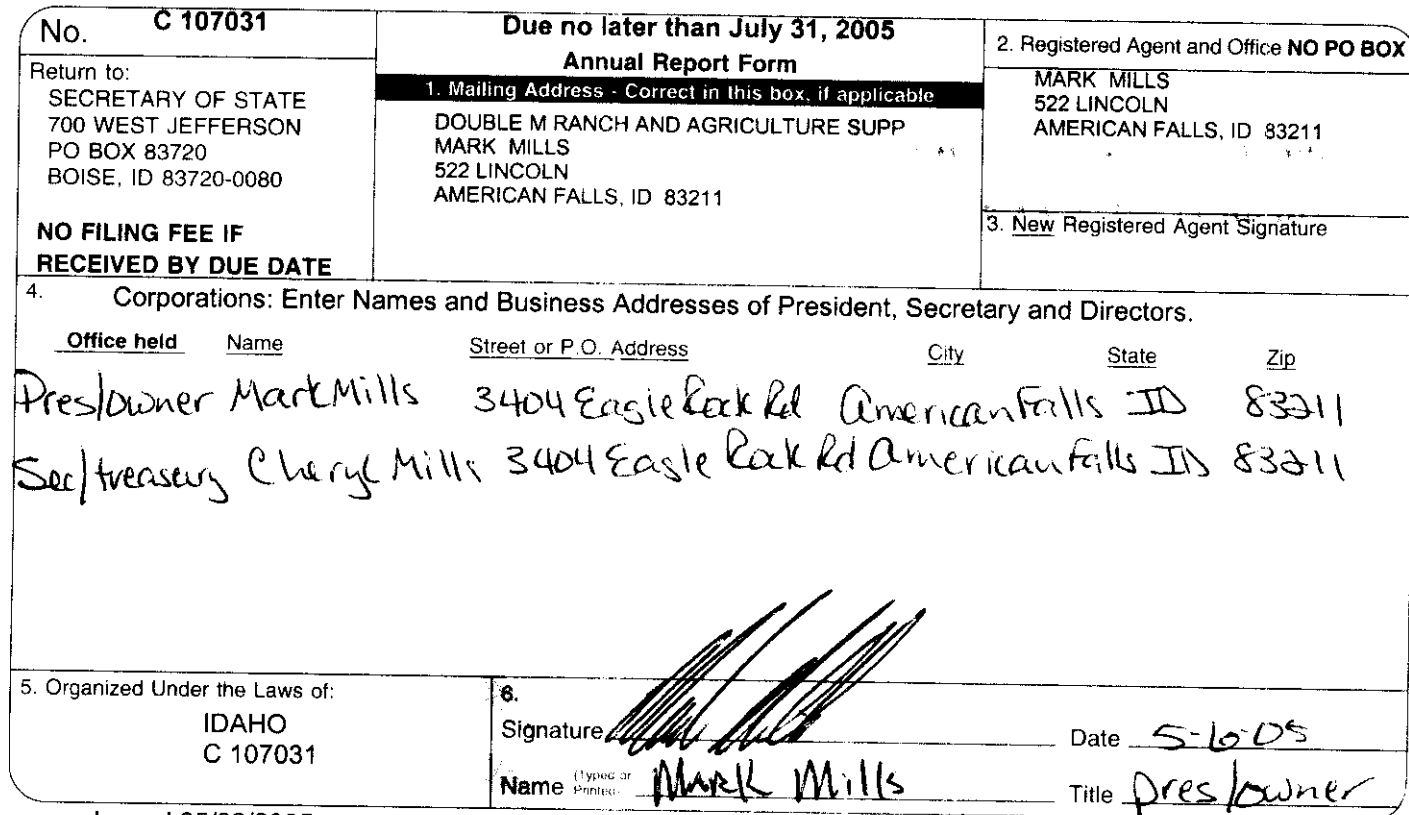 No. C 107031
Return to:
SECRETARY OF STATE
700 WEST JEFFERSON
PO BOX 83720
BOISE, ID 83720-0080
NO FILING FEE IF
RECEIVED BY DUE DATE
Due no later than July 31, 2005
Annual Report Form
1. Mailing Address - Correct in this box, if applicable
DOUBLE M RANCH AND AGRICULTURE SUPP
MARK MILLS
522 LINCOLN
AMERICAN FALLS, ID 83211
2. Registered Agent and Office NO PO BOX
MARK MILLS
522 LINCOLN
AMERICAN FALLS, ID 83211
3. New Registered Agent Signature
4. Corporations: Enter Names and Business Addresses of President, Secretary and Directors.
Office held Name Street or P.O. Address City State Zip
Pres/owner Mark Mills 3404 Eagle Rock Rd American Falls ID 83211
Sec/treasury Cheryl Mills 3404 Eagle Rock Rd American Falls ID 83211
5. Organized Under the Laws of:
IDAHO
C 107031
6.
Signature Date 5-6-05
Name (Typed or Printed) Mark Mills Title pres/owner